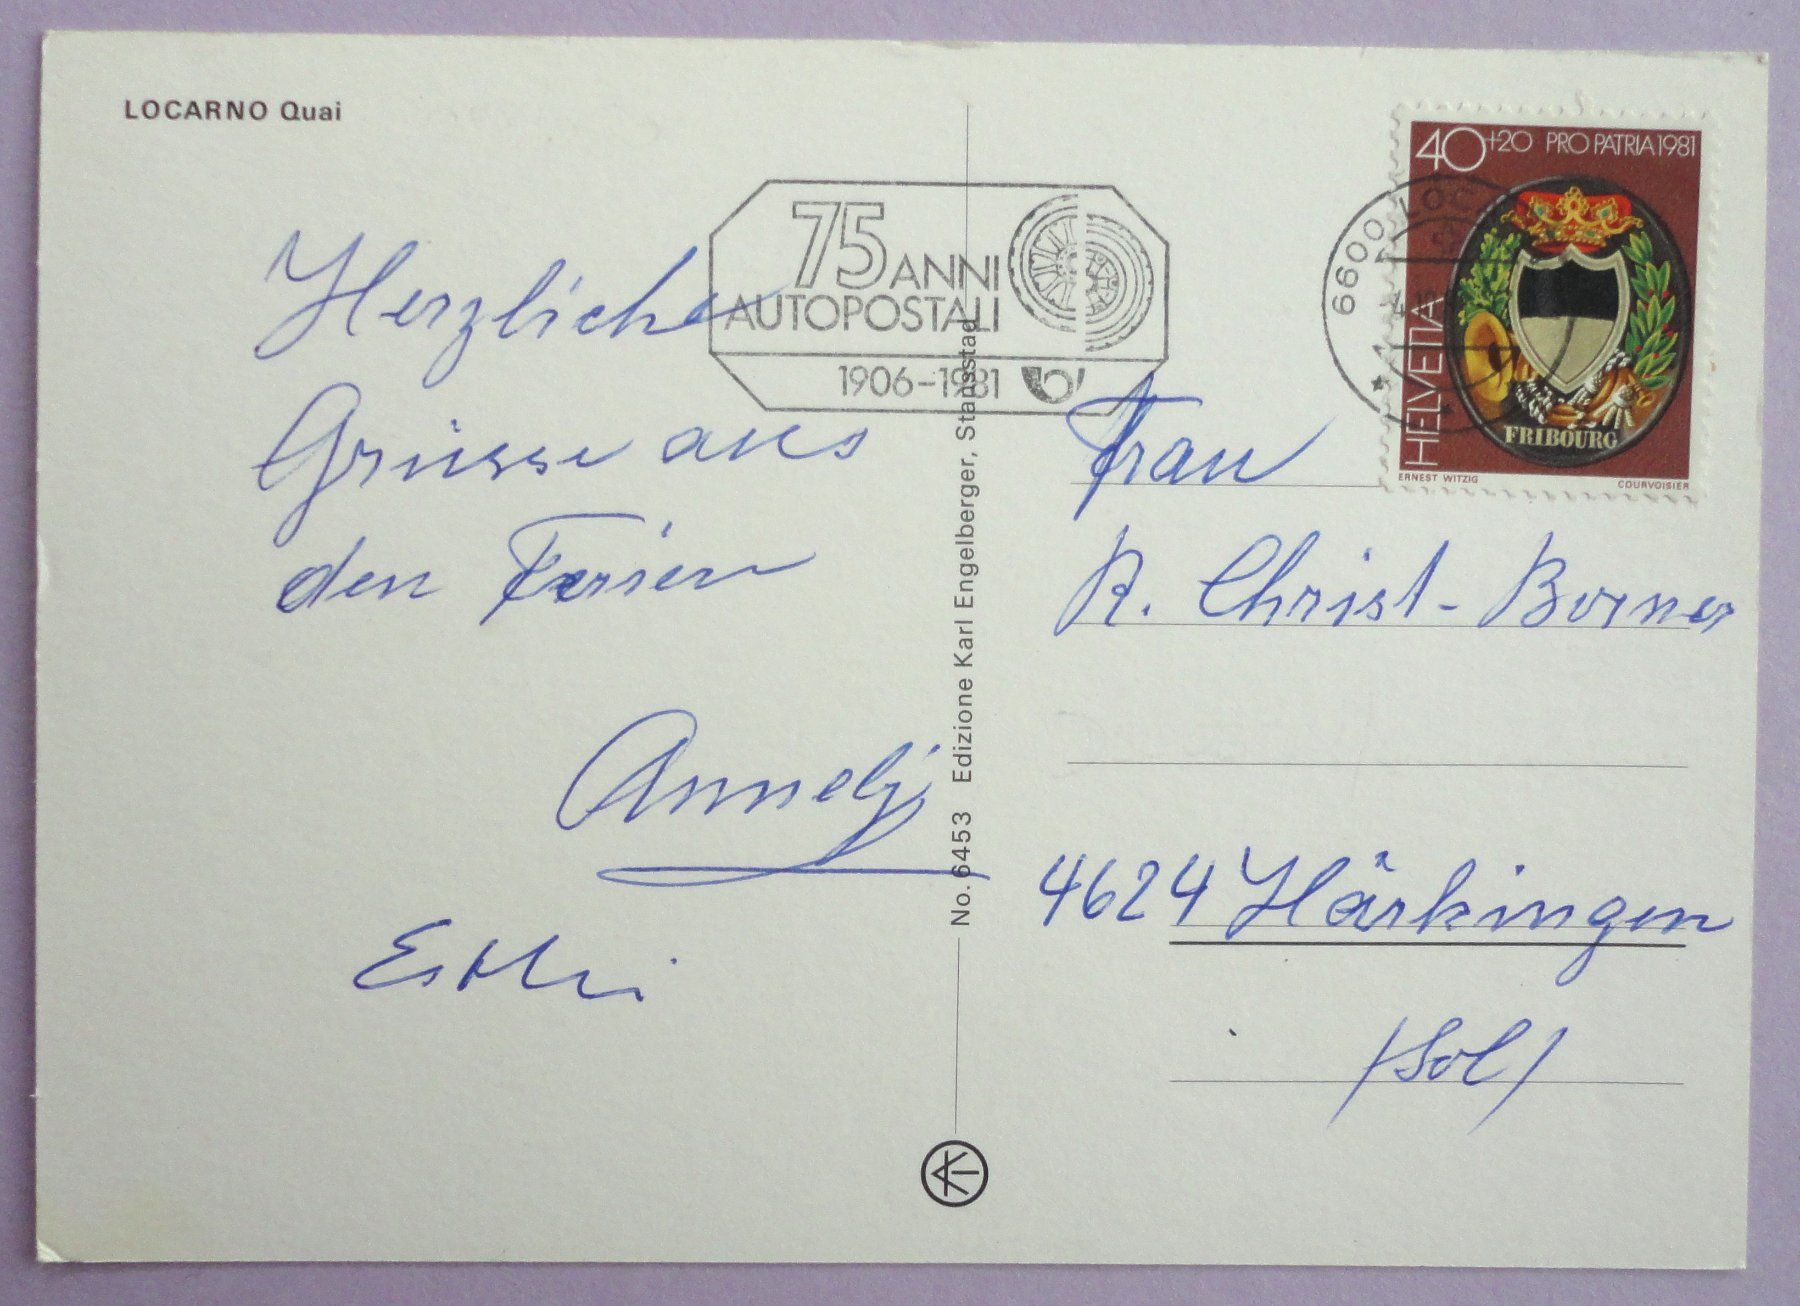 LOCARNO Quai
75 ANNI
AUTOPOSTALI
1906-1981
6600 LOC
40+20 PRO PATRIA 1981
HELVETIA
FRIBOURG
ERNEST WITZIG
COURVOISIER
Herzliche
Grüsse aus
den Ferien
Annelj
Esthi
No. 6453 Edizione Karl Engelberger, Stansstad
Frau
R. Christ-Borner
4624 Härkingen
/Sol/